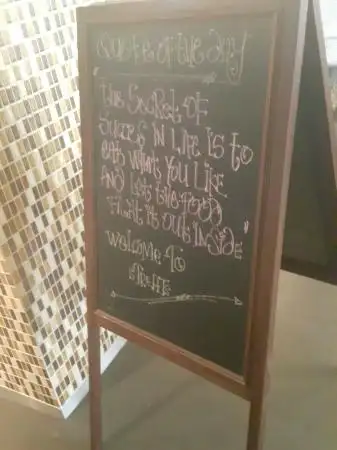 Quote of the Day
"the Secret OF
Success IN LiFe Is to
eat what You LIKE
AND Let the FOOD
FIGHt it Out INSIDE"
Welcome to